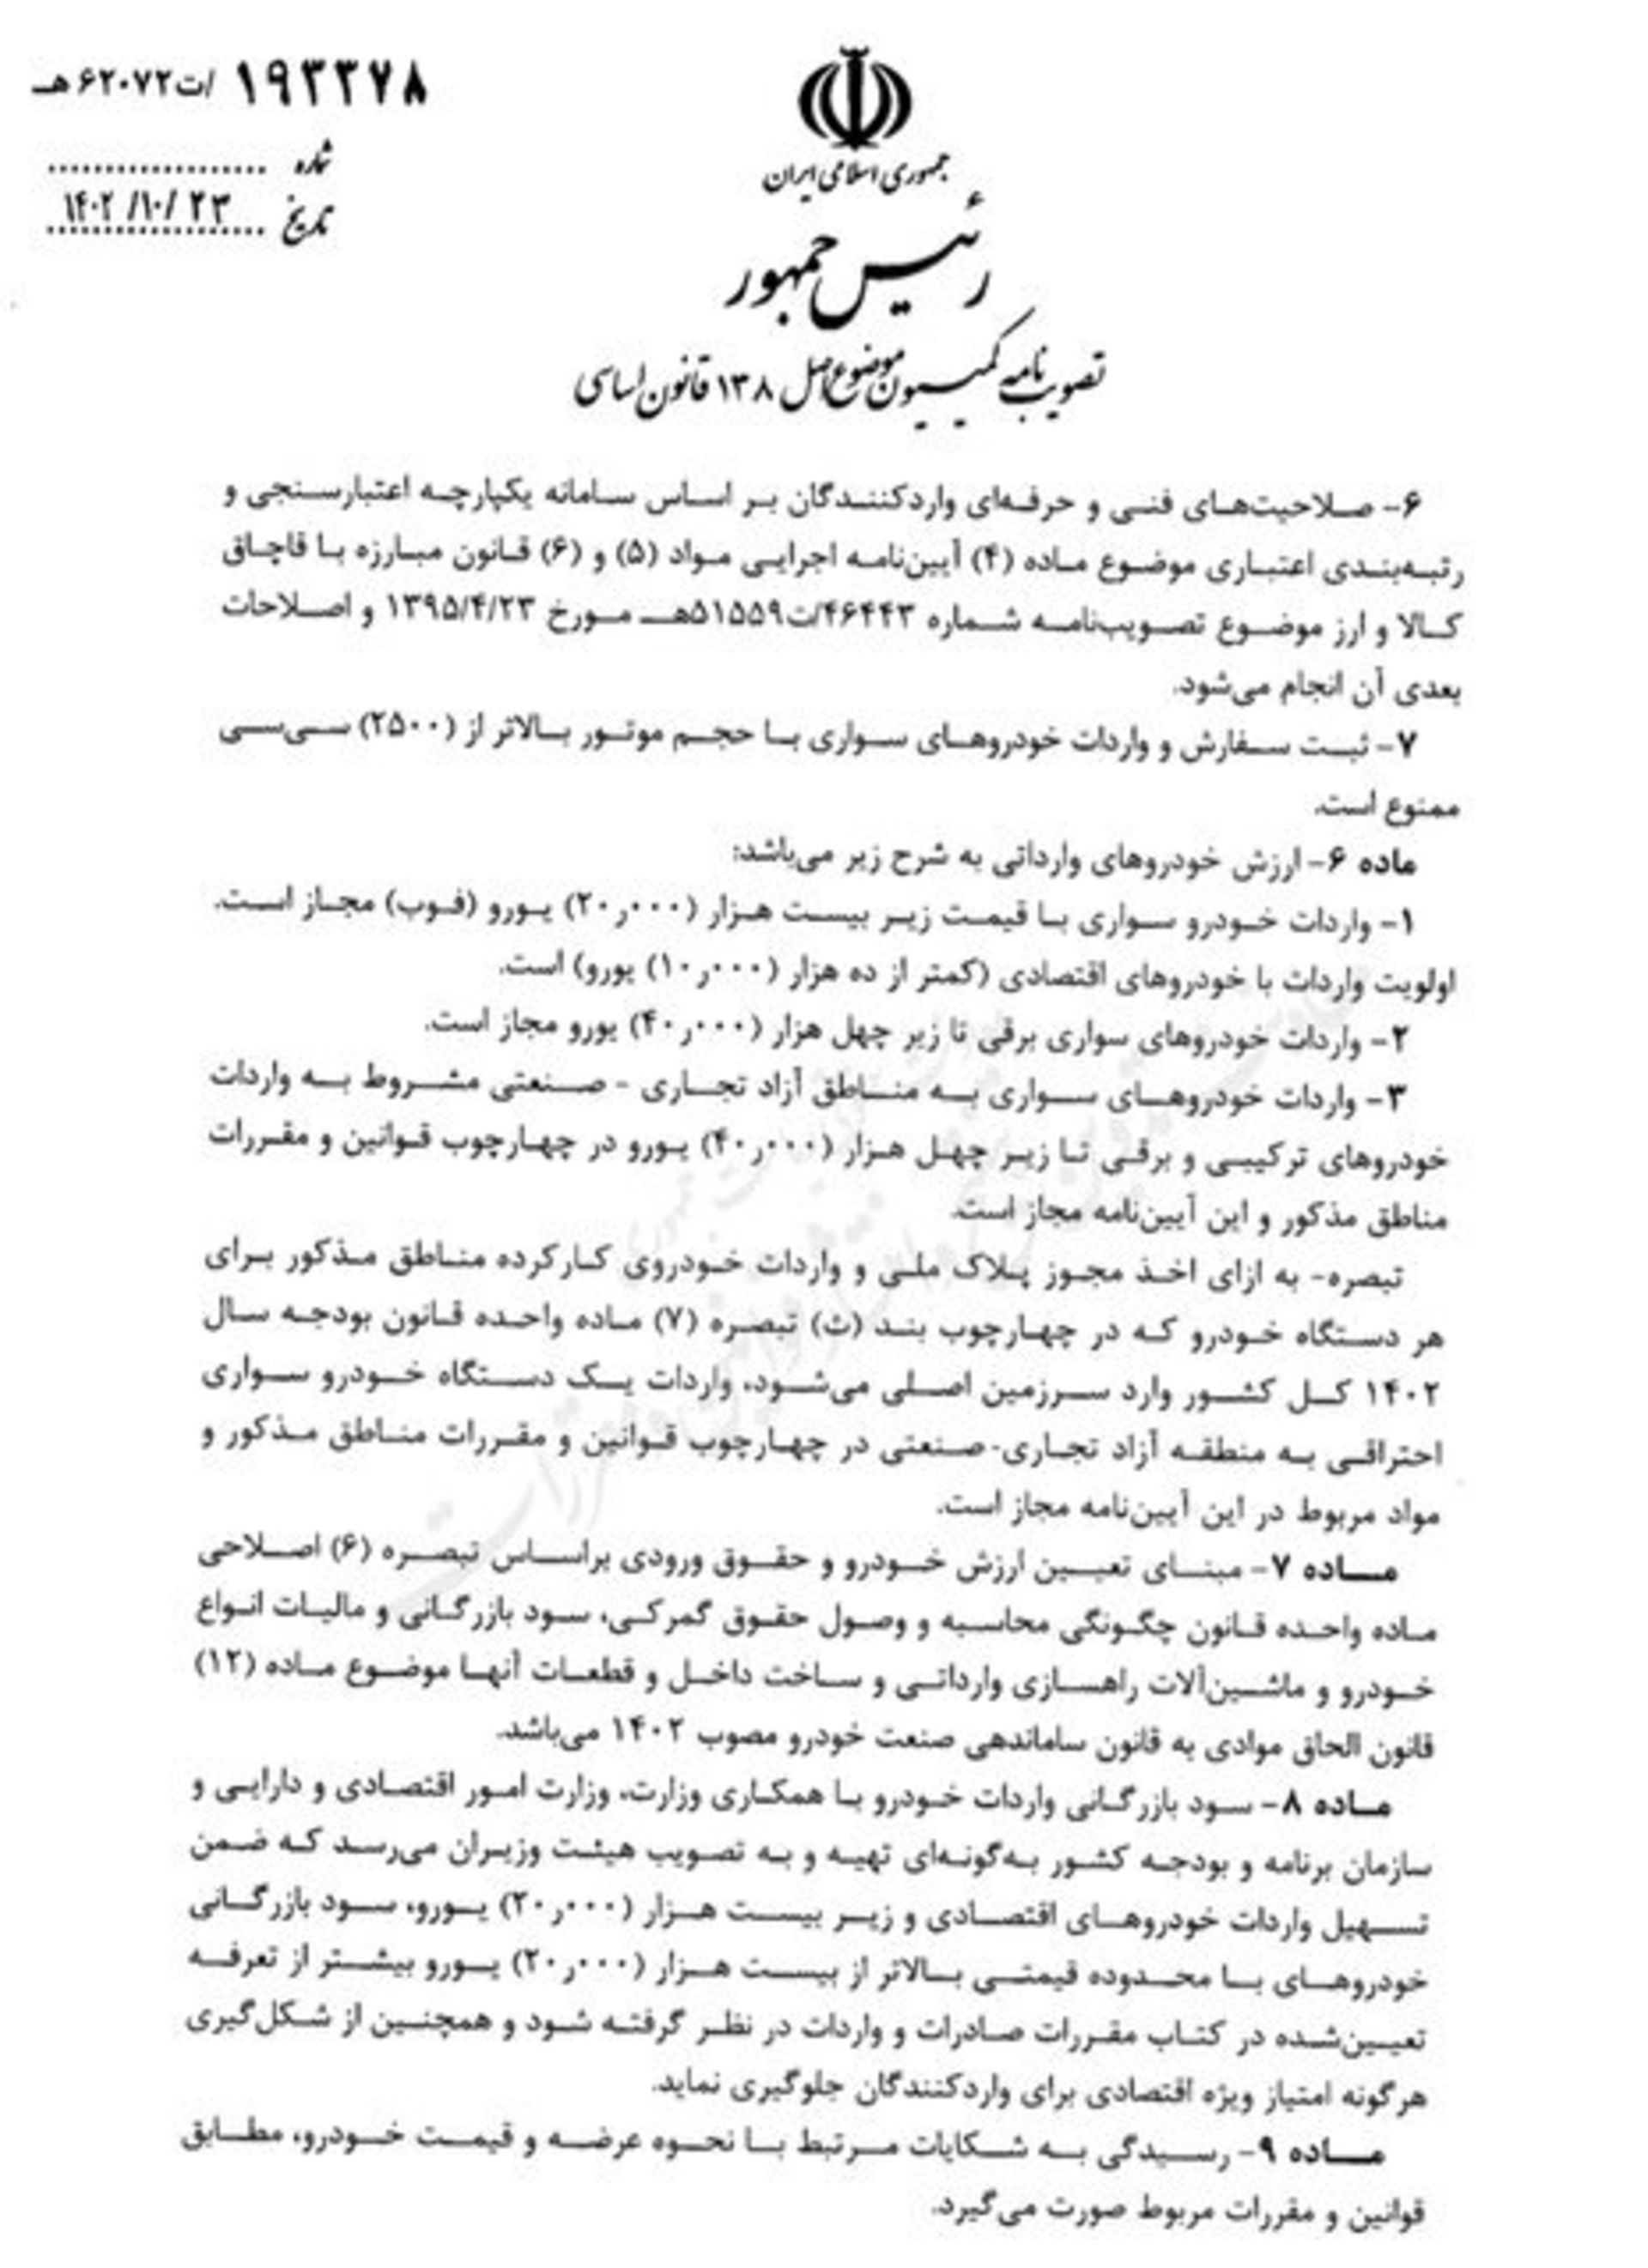 ۱۹۳۳۷۸ /ت۶۲۰۷۲هـ
شماره ....................
تاریخ ۱۴۰۲/۱۰/۲۳
جمهوری اسلامی ایران
رئیس جمهور
تصویب نامه کمیسیون موضوع اصل ۱۳۸ قانون اساسی
۶- صلاحیت‌های فنی و حرفه‌ای واردکنندگان بر اساس سامانه یکپارچه اعتبارسنجی و
رتبه‌بندی اعتباری موضوع ماده (۴) آیین‌نامه اجرایی مواد (۵) و (۶) قانون مبارزه با قاچاق
کالا و ارز موضوع تصویب‌نامه شماره ۴۶۴۴۳/ت۵۱۵۵۹هـ مورخ ۱۳۹۵/۴/۲۳ و اصلاحات
بعدی آن انجام می‌شود.
۷- ثبت سفارش و واردات خودروهای سواری با حجم موتور بالاتر از (۲۵۰۰) سی‌سی
ممنوع است.
ماده ۶- ارزش خودروهای وارداتی به شرح زیر می‌باشد:
۱- واردات خودرو سواری با قیمت زیر بیست هزار (۲۰٫۰۰۰) یورو (فوب) مجاز است.
اولویت واردات با خودروهای اقتصادی (کمتر از ده هزار (۱۰٫۰۰۰) یورو) است.
۲- واردات خودروهای سواری برقی تا زیر چهل هزار (۴۰٫۰۰۰) یورو مجاز است.
۳- واردات خودروهای سواری به مناطق آزاد تجاری - صنعتی مشروط به واردات
خودروهای ترکیبی و برقی تا زیر چهل هزار (۴۰٫۰۰۰) یورو در چهارچوب قوانین و مقررات
مناطق مذکور و این آیین‌نامه مجاز است.
تبصره- به ازای اخذ مجوز پلاک ملی و واردات خودروی کارکرده مناطق مذکور برای
هر دستگاه خودرو که در چهارچوب بند (ث) تبصره (۷) ماده واحده قانون بودجه سال
۱۴۰۲ کل کشور وارد سرزمین اصلی می‌شود، واردات یک دستگاه خودرو سواری
احتراقی به منطقه آزاد تجاری-صنعتی در چهارچوب قوانین و مقررات مناطق مذکور و
مواد مربوط در این آیین‌نامه مجاز است.
ماده ۷- مبنای تعیین ارزش خودرو و حقوق ورودی براساس تبصره (۶) اصلاحی
ماده واحده قانون چگونگی محاسبه و وصول حقوق گمرکی، سود بازرگانی و مالیات انواع
خودرو و ماشین‌آلات راهسازی وارداتی و ساخت داخل و قطعات آنها موضوع ماده (۱۲)
قانون الحاق موادی به قانون ساماندهی صنعت خودرو مصوب ۱۴۰۲ می‌باشد.
ماده ۸- سود بازرگانی واردات خودرو با همکاری وزارت، وزارت امور اقتصادی و دارایی و
سازمان برنامه و بودجه کشور به‌گونه‌ای تهیه و به تصویب هیئت وزیران می‌رسد که ضمن
تسهیل واردات خودروهای اقتصادی و زیر بیست هزار (۲۰٫۰۰۰) یورو، سود بازرگانی
خودروهای با محدوده قیمتی بالاتر از بیست هزار (۲۰٫۰۰۰) یورو بیشتر از تعرفه
تعیین‌شده در کتاب مقررات صادرات و واردات در نظر گرفته شود و همچنین از شکل‌گیری
هرگونه امتیاز ویژه اقتصادی برای واردکنندگان جلوگیری نماید.
ماده ۹- رسیدگی به شکایات مرتبط با نحوه عرضه و قیمت خودرو، مطابق
قوانین و مقررات مربوط صورت می‌گیرد.